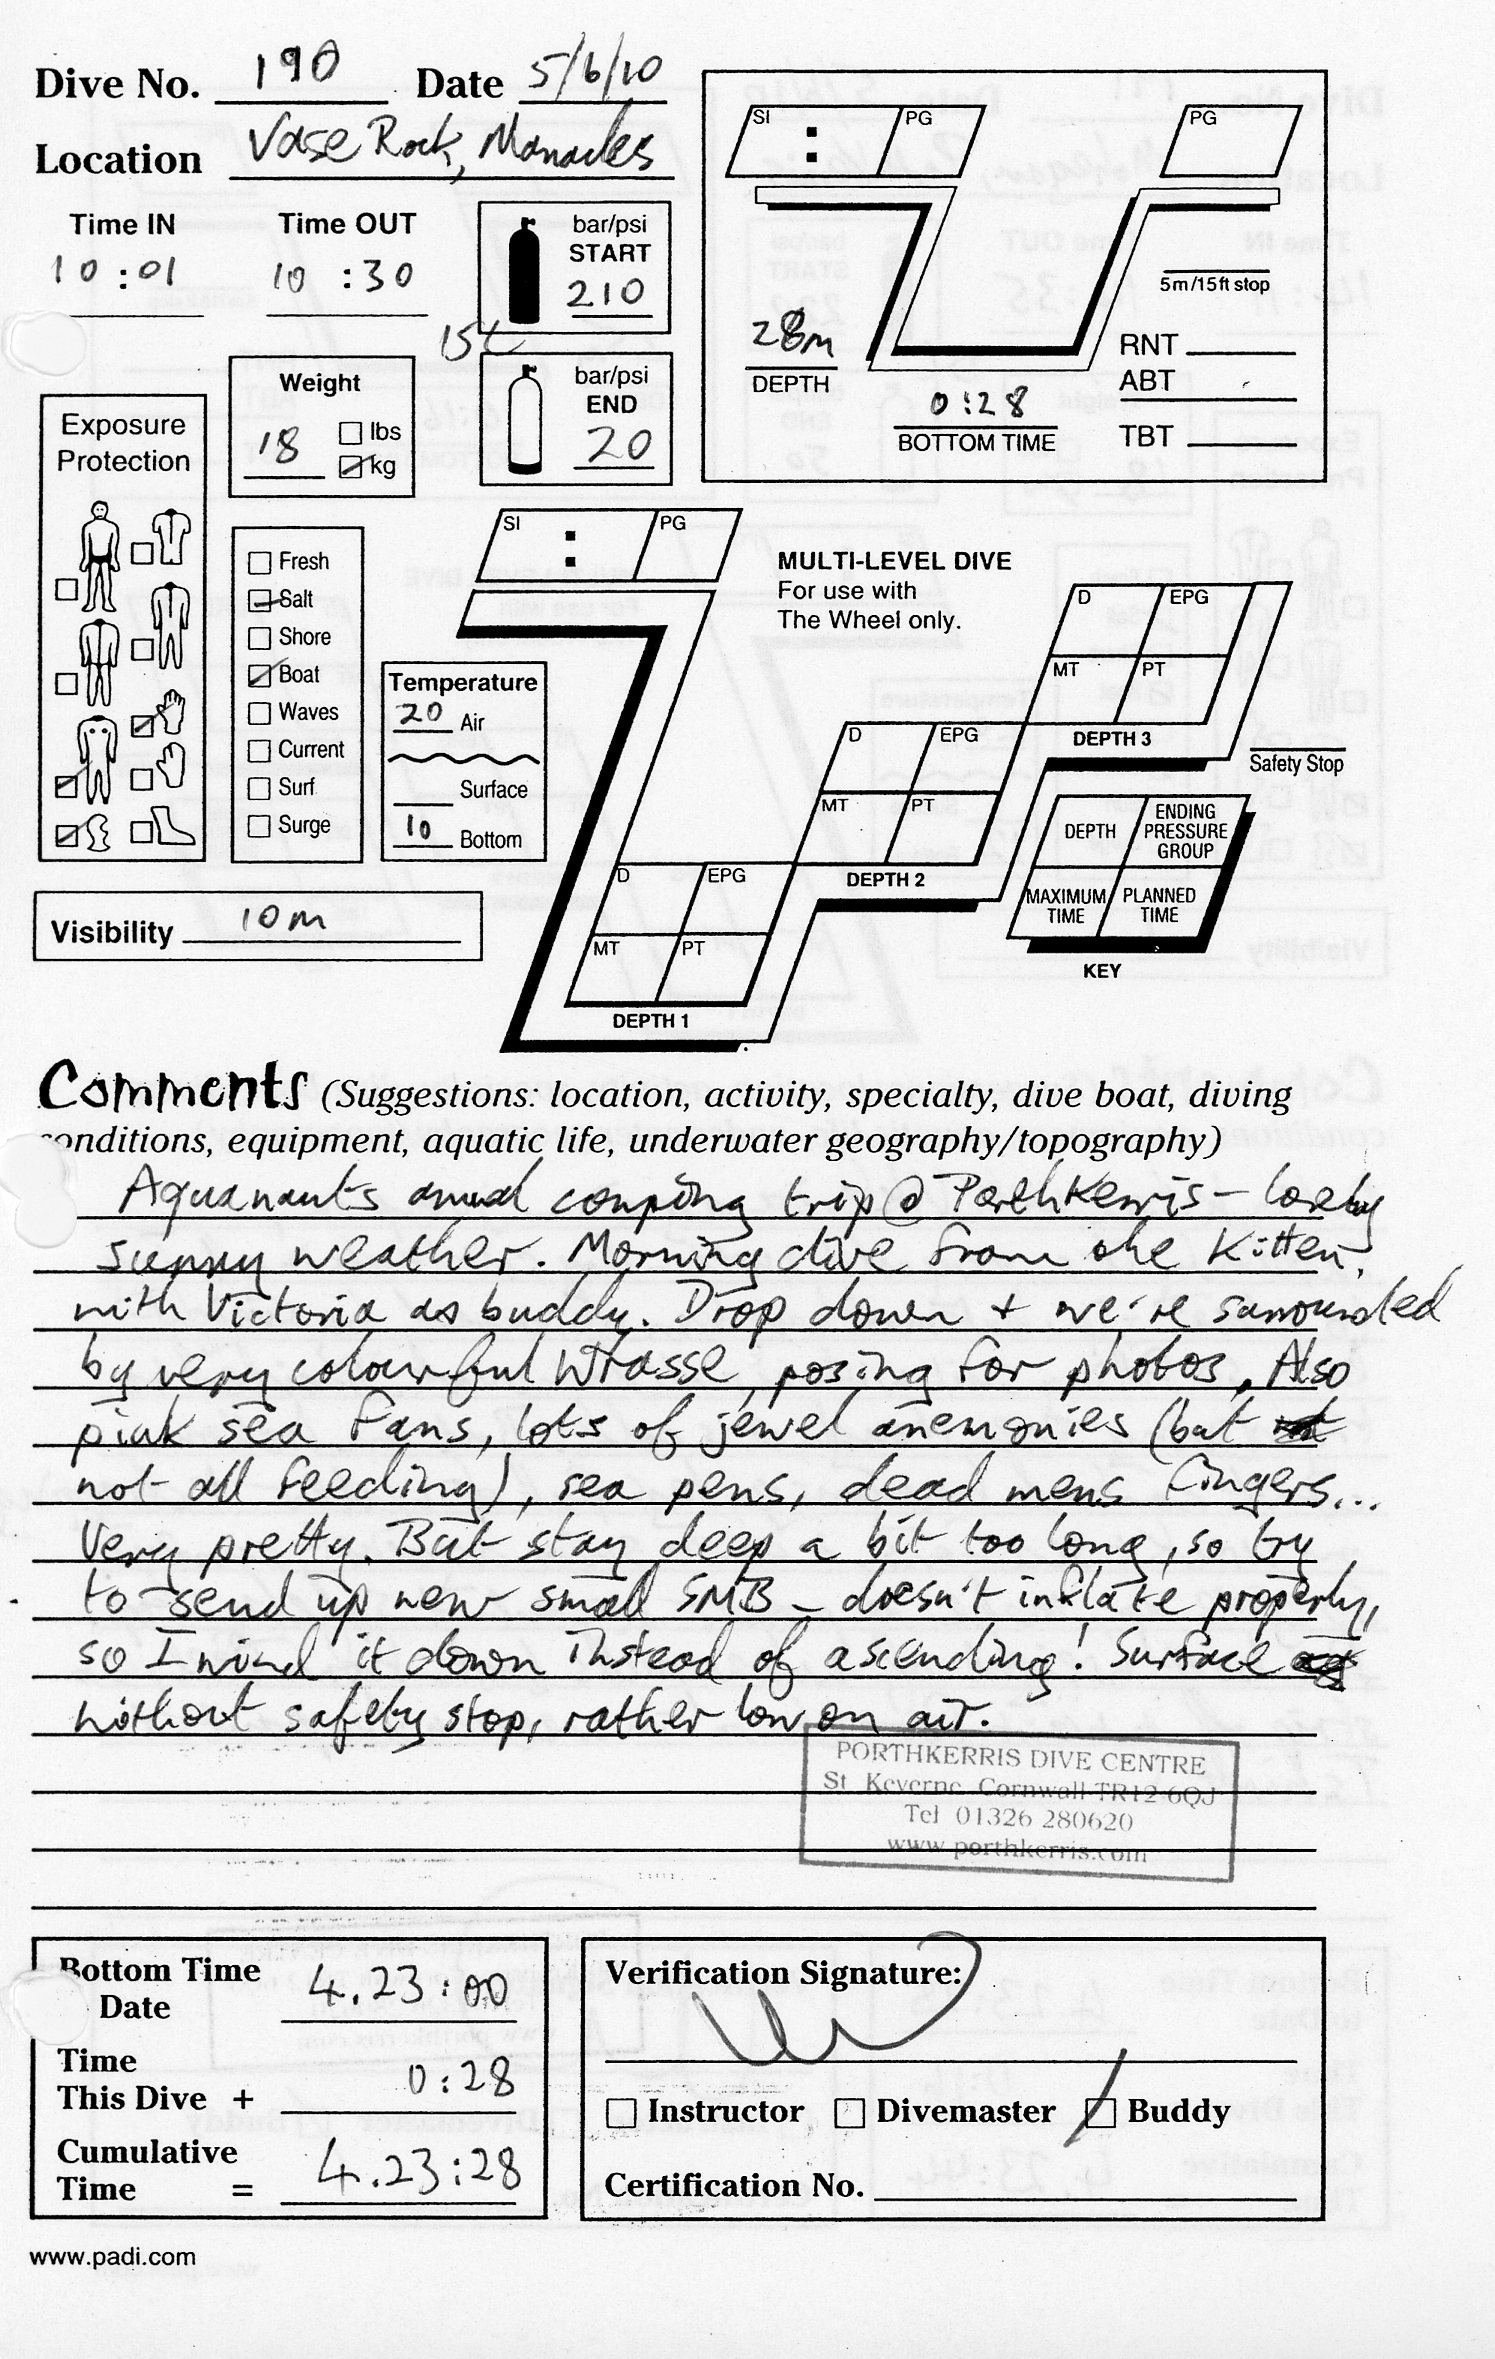 Dive No. 190 Date 5/6/10
Location Vase Rock, Manacles
Time IN Time OUT
10:01 10:30
bar/psi
START
210
15L
bar/psi
END
20
SI : PG
PG
5m/15ft stop
28m
DEPTH
0:28
BOTTOM TIME
RNT
ABT
TBT
Weight
18 lbs
kg
Exposure
Protection
Fresh
Salt
Shore
Boat
Waves
Current
Surf
Surge
Temperature
20 Air
Surface
10 Bottom
Visibility 10m
SI : PG
MULTI-LEVEL DIVE
For use with
The Wheel only.
D EPG
MT PT
DEPTH 3
Safety Stop
D EPG
MT PT
DEPTH 2
D EPG
MT PT
DEPTH 1
DEPTH
ENDING
PRESSURE
GROUP
MAXIMUM
TIME
PLANNED
TIME
KEY
Comments (Suggestions: location, activity, specialty, dive boat, diving
conditions, equipment, aquatic life, underwater geography/topography)
Aquanauts annual camping trip @ Porthkerris – lovely
sunny weather. Morning dive from the Kitten,
with Victoria as buddy. Drop down + we're surrounded
by very colourful wrasse, posing for photos. Also
pink sea fans, lots of jewel anemonies (but
not all feeding), sea pens, dead mens fingers...
Very pretty. But stay deep a bit too long, so try
to send up new small SMB – doesn't inflate properly,
so I wind it down instead of ascending! Surface
without safety stop, rather low on air.
PORTHKERRIS DIVE CENTRE
St Keverne Cornwall TR12 6QJ
Tel 01326 280620
www.porthkerris.com
Bottom Time
Date 4.23:00
Time
This Dive + 0:28
Cumulative
Time = 4.23:28
Verification Signature:
Instructor Divemaster Buddy
Certification No.
www.padi.com